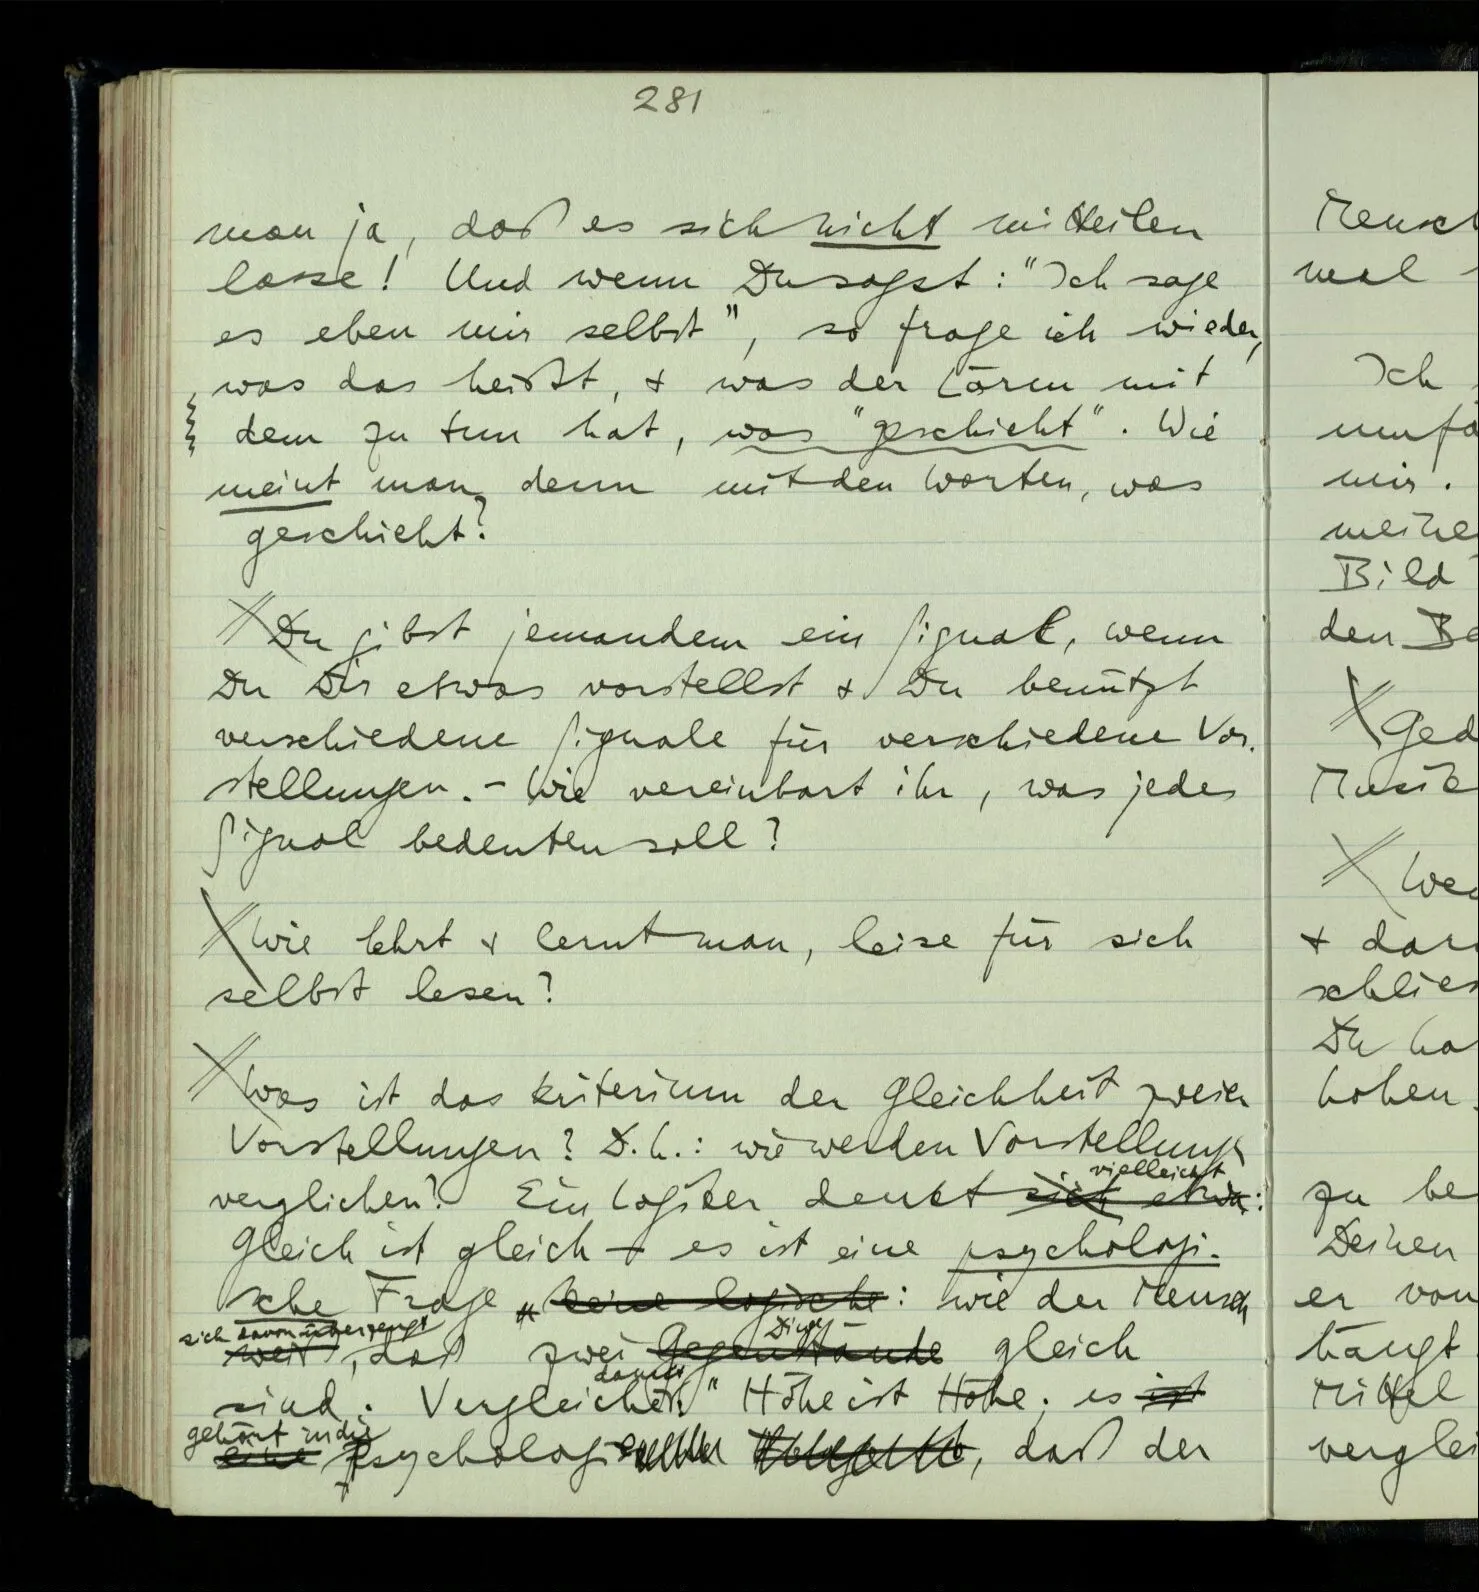 281
man ja, daß es sich nicht mitteilen
lasse! Und wenn Du sagst: "Ich sage
es eben mir selbst", so frage ich wieder,
was das heißt, & was der Lärm mit
dem zu tun hat, was "geschieht". Wie
meint man denn mit den Worten, was
geschieht?
Du gibst jemandem ein Signal, wenn
Du Dir etwas vorstellst & Du benützt
verschiedene Signale für verschiedene Vor-
stellungen. – Wie vereinbart ihr, was jedes
Signal bedeuten soll?
Wie lehrt & lernt man, leise für sich
selbst lesen?
Was ist das Kriterium der Gleichheit zweier
Vorstellungen? D.h.: wie werden Vorstellungen
vielleicht
verglichen? Ein Logiker denkt sich etwa:
Gleich ist gleich – es ist eine psychologi-
sche Frage keine logische: wie der Mensch
sich davon überzeugt Dinge
weiß, daß zwei Gegenstände gleich
damit
sind. Vergleiche " Höhe ist Höhe; es ist
gehört in die
eine Psychologie, daß der
Mensch
mal
Ich
mir.
meine
Bild
den
Musik
&
Du ha
hohen
zu be
Deinen
er von
hängt
Mittel
verglei